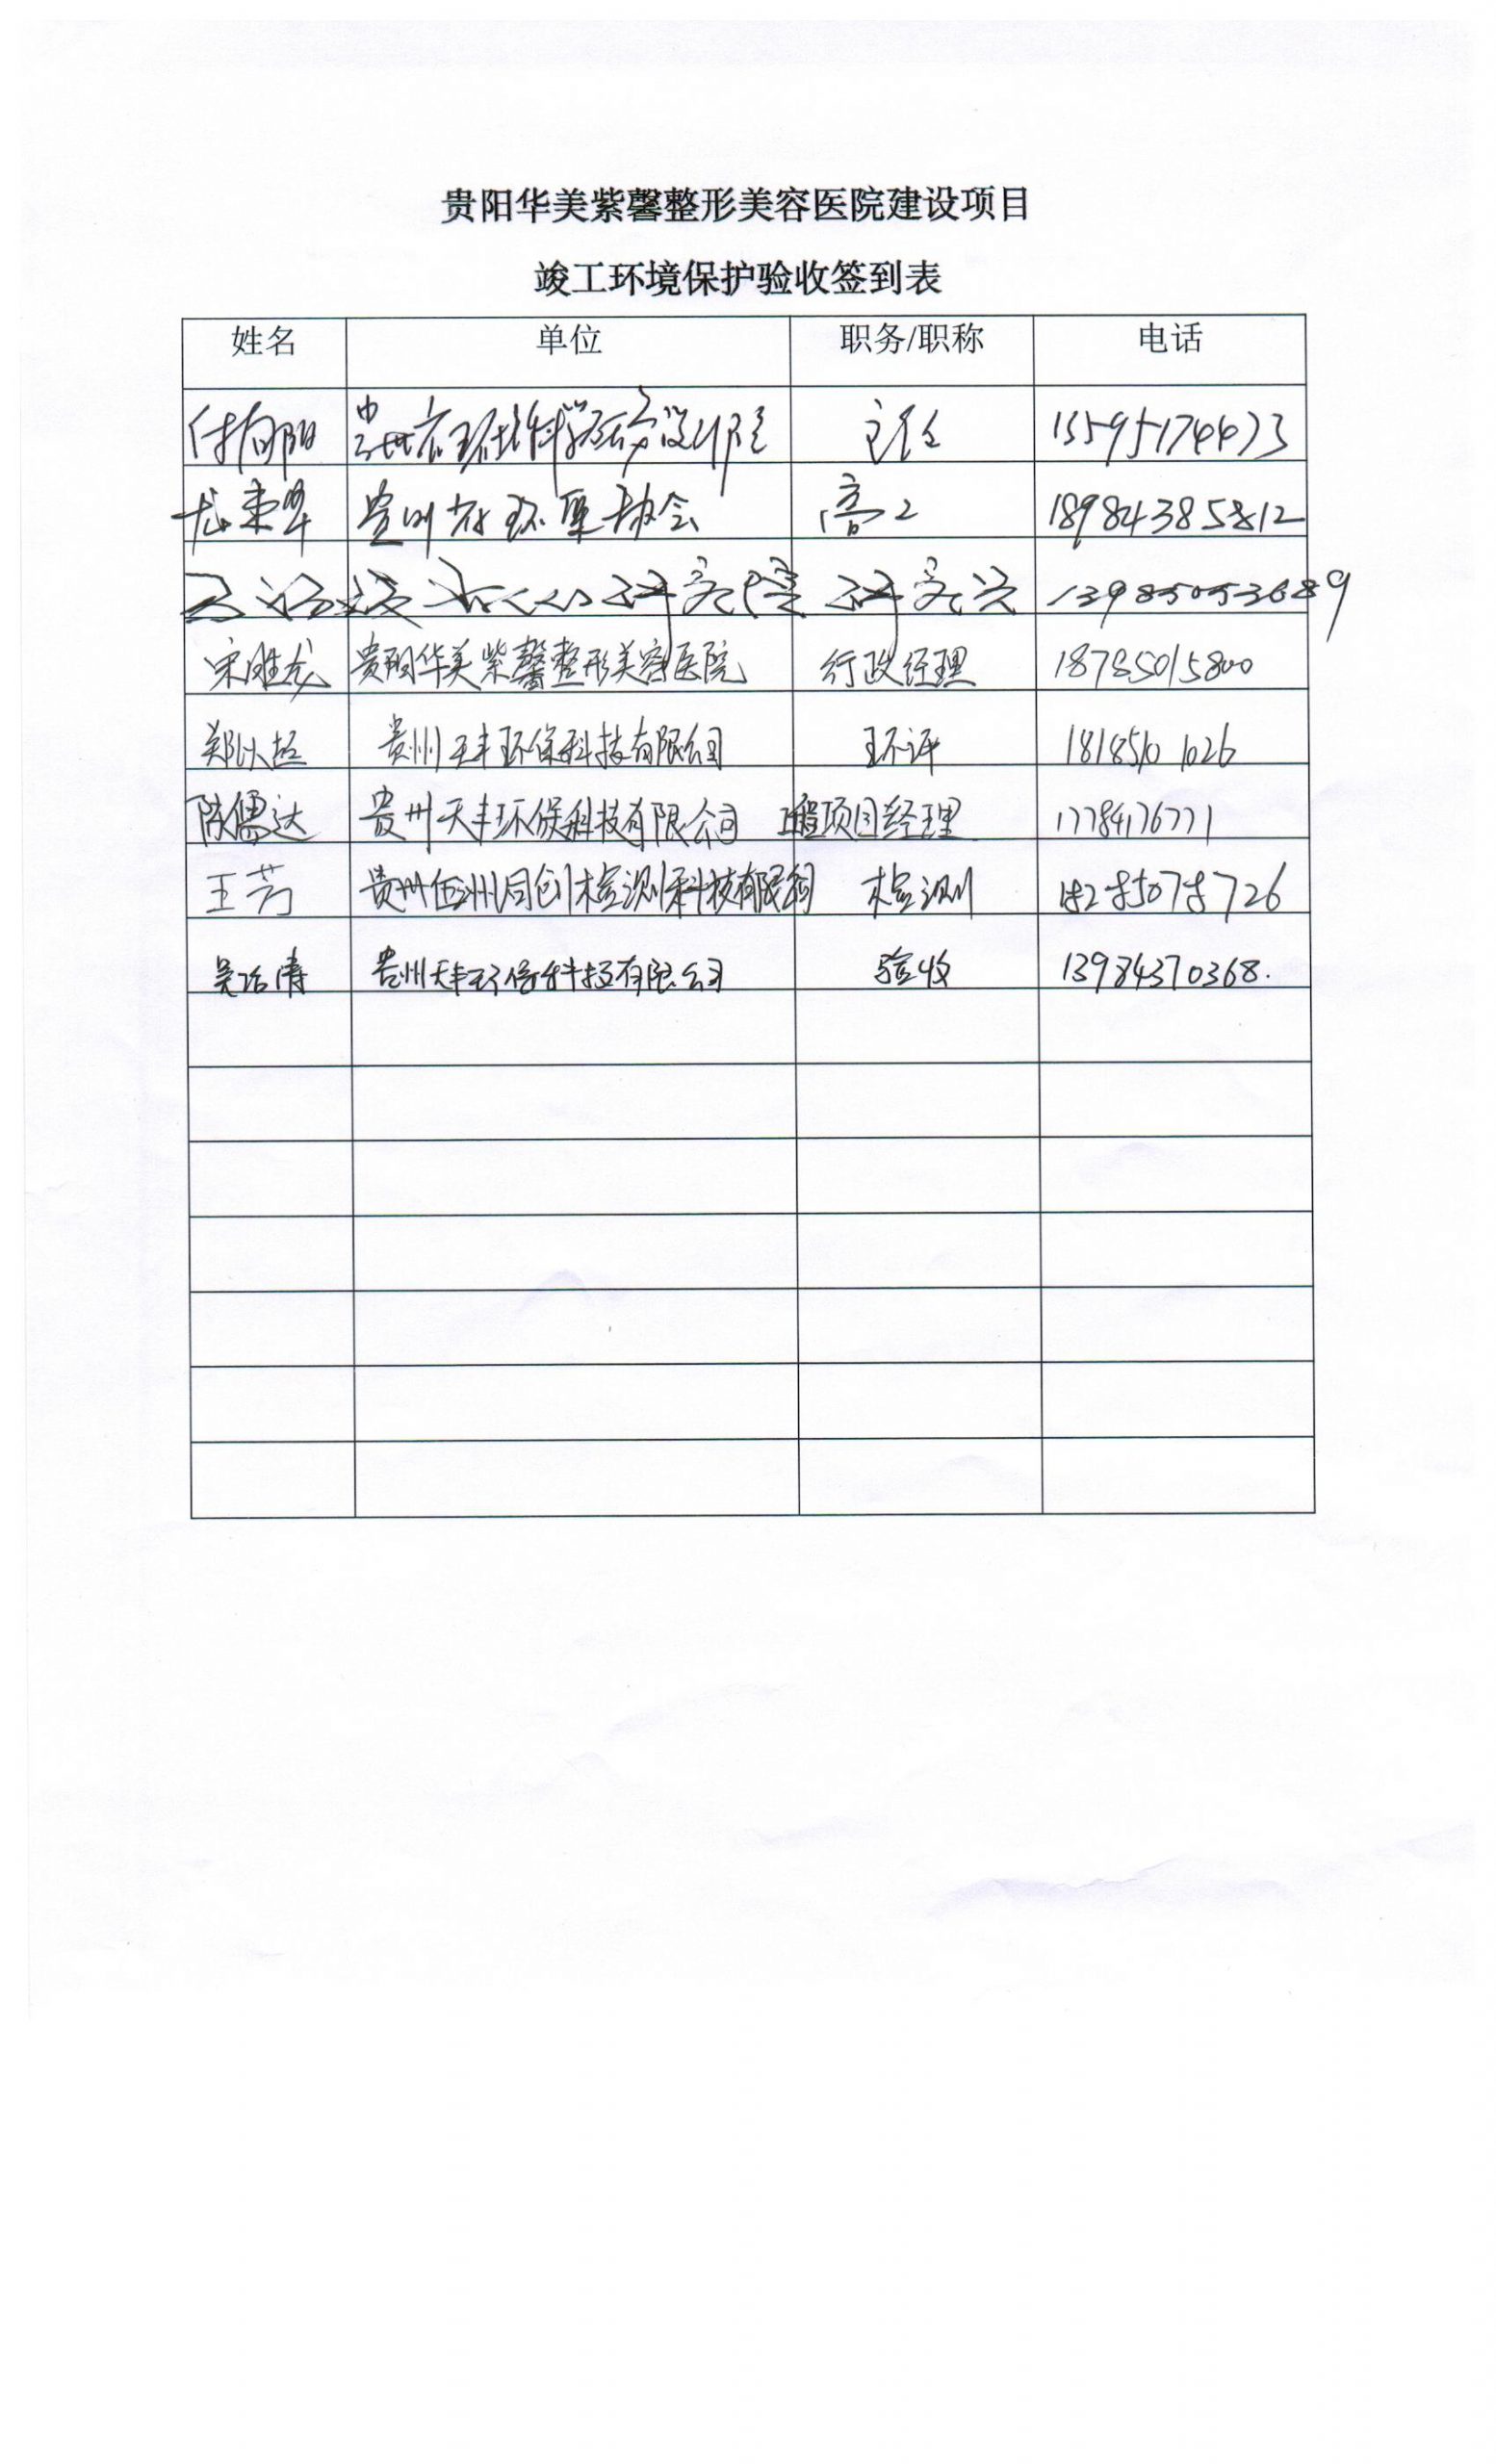 贵阳华美紫馨整形美容医院建设项目
竣工环境保护验收签到表
姓名 单位 职务/职称 电话
付向阳 主任 15595174473
高工 18984385812
研究院 研究员 13985053689
贵阳华美紫馨整形美容医院 行政经理 18785015800
贵州天丰环保科技有限公司 环评 18185101026
陈儒达 贵州天丰环保科技有限公司 项目经理 17784176771
王芳 贵州伍洲同创检测科技有限公司 检测 18285078726
贵州天丰环保科技有限公司 验收 13984370368.